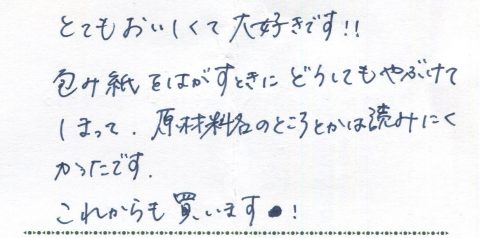 とてもおいしくて大好きです!!
包み紙をはがすときにどうしてもやぶけて
しまって、原材料名のところとかは読みにく
かったです.
これからも買います!